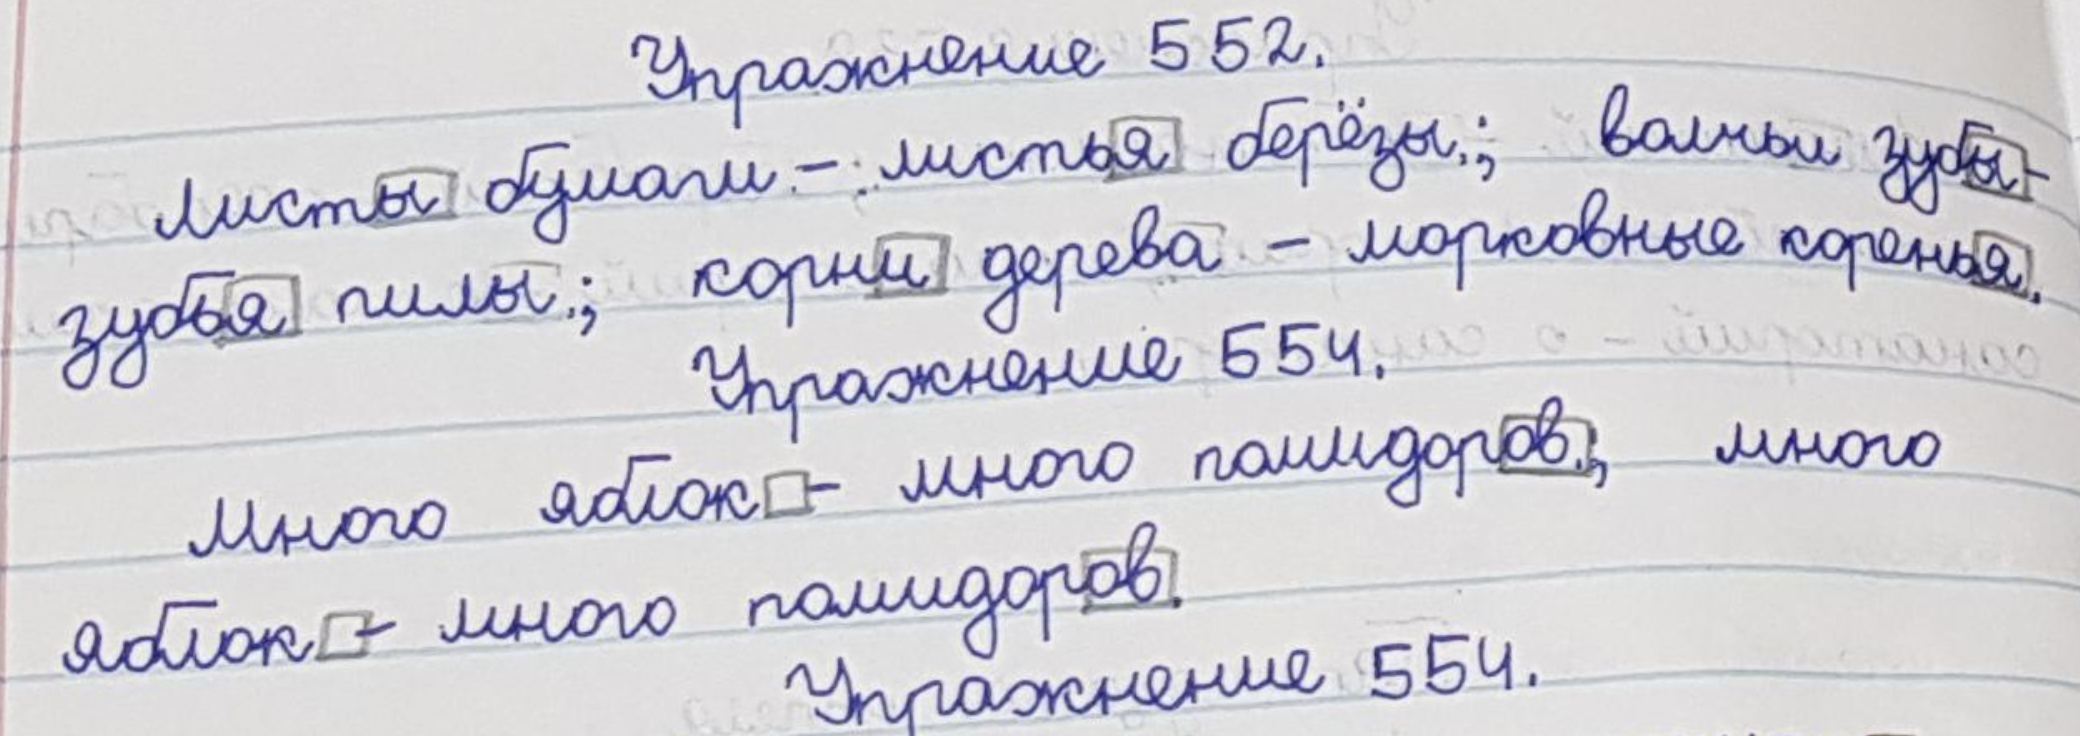 Упражнение 552.
Листы бумаги - листья берёзы.; волчьи зубы-
зубья пилы.; корни дерева - морковные коренья.
Упражнение 554.
Много яблок - много помидоров.; много
яблок - много помидоров.
Упражнение 554.